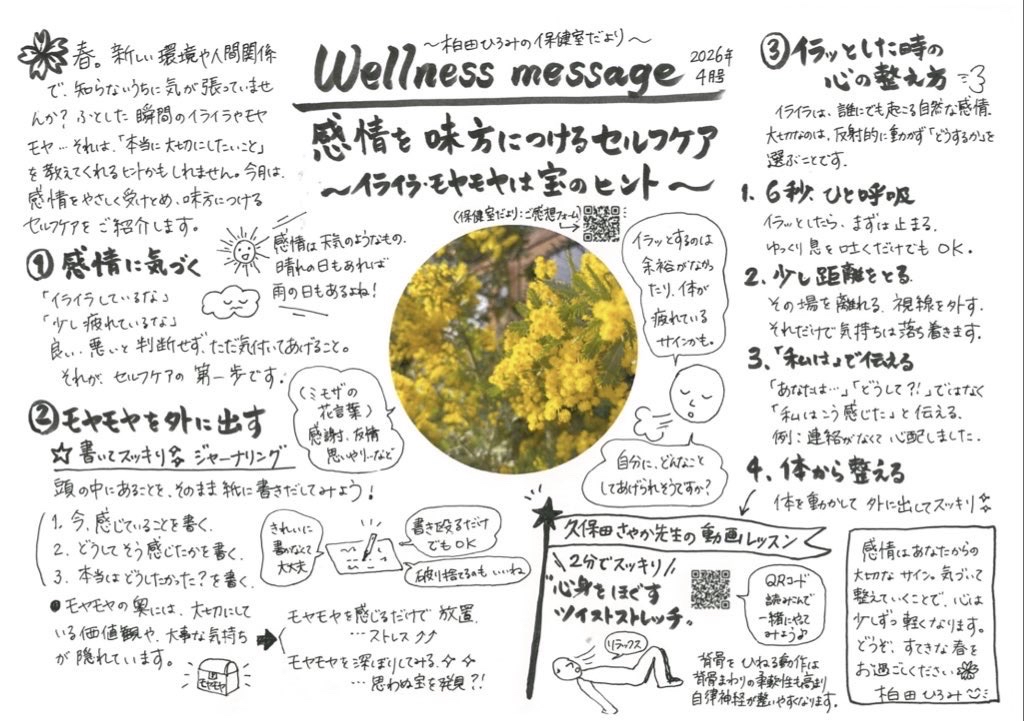 春。新しい環境や人間関係
で、知らないうちに気が張っていませ
んか？ふとした瞬間のイライラやモヤ
モヤ…それは、「本当に大切にしたいこと」
を教えてくれるヒントかもしれません。今月は、
感情をやさしく受けとめ、味方につける
セルフケアをご紹介します。
〜柏田ひろみの保健室だより〜
Wellness message
2026年
4月号
感情を味方につけるセルフケア
〜イライラ・モヤモヤは宝のヒント〜
(保健室だより：ご感想フォーム)
① 感情に気づく
「イライラしているな」
「少し疲れているな」
良い、悪いと判断せず、ただ気付いてあげること。
それが、セルフケアの第一歩です。
感情は天気のようなもの、
晴れの日もあれば
雨の日もあるよね！
② モヤモヤを外に出す
☆書いてスッキリ ジャーナリング
頭の中にあることを、そのまま紙に書きだしてみよう！
1. 今、感じていることを書く。
2. どうしてそう感じたかを書く。
3. 本当はどうしたかった？を書く。
●モヤモヤの奥には、大切にして
いる価値観や、大事な気持ち
が隠れています。
モヤモヤ
きれいに
書かなくて
大丈夫
書き殴るだけ
でもOK
破り捨てるのもいいね
モヤモヤを感じるだけで放置
…ストレス↗↗
モヤモヤを深ぼりしてみる
…思わぬ宝を発見?!
(ミモザの
花言葉)
感謝、友情
思いやり…など
イラッとするのは
余裕がなかっ
たり、体が
疲れている
サインかも。
自分に、どんなこと
してあげられそうですか？
③ イラッとした時の
心の整え方
イライラは、誰にでも起こる自然な感情。
大切なのは、反射的に動かず「どうするか」を
選ぶことです。
1. 6秒、ひと呼吸
イラッとしたら、まずは止まる。
ゆっくり息を吐くだけでもOK。
2. 少し距離をとる
その場を離れる、視線を外す。
それだけで気持ちは落ち着きます。
3. 「私は」で伝える
「あなたは…」「どうして?!」ではなく
「私はこう感じた」と伝える。
例：連絡がなくて心配しました。
4. 体から整える
体を動かして外に出してスッキリ
久保田さやか先生の動画レッスン
2分でスッキリ
心身をほぐす
ツイストストレッチ。
QRコード
読みこんで
一緒にやって
みよう♪
リラックス
背骨をひねる動作は
背骨まわりの柔軟性も高まり
自律神経が整いやすくなります。
感情はあなたからの
大切なサイン。気づいて
整えていくことで、心は
少しずつ軽くなります。
どうぞ、すてきな春を
お過ごしください
柏田ひろみ